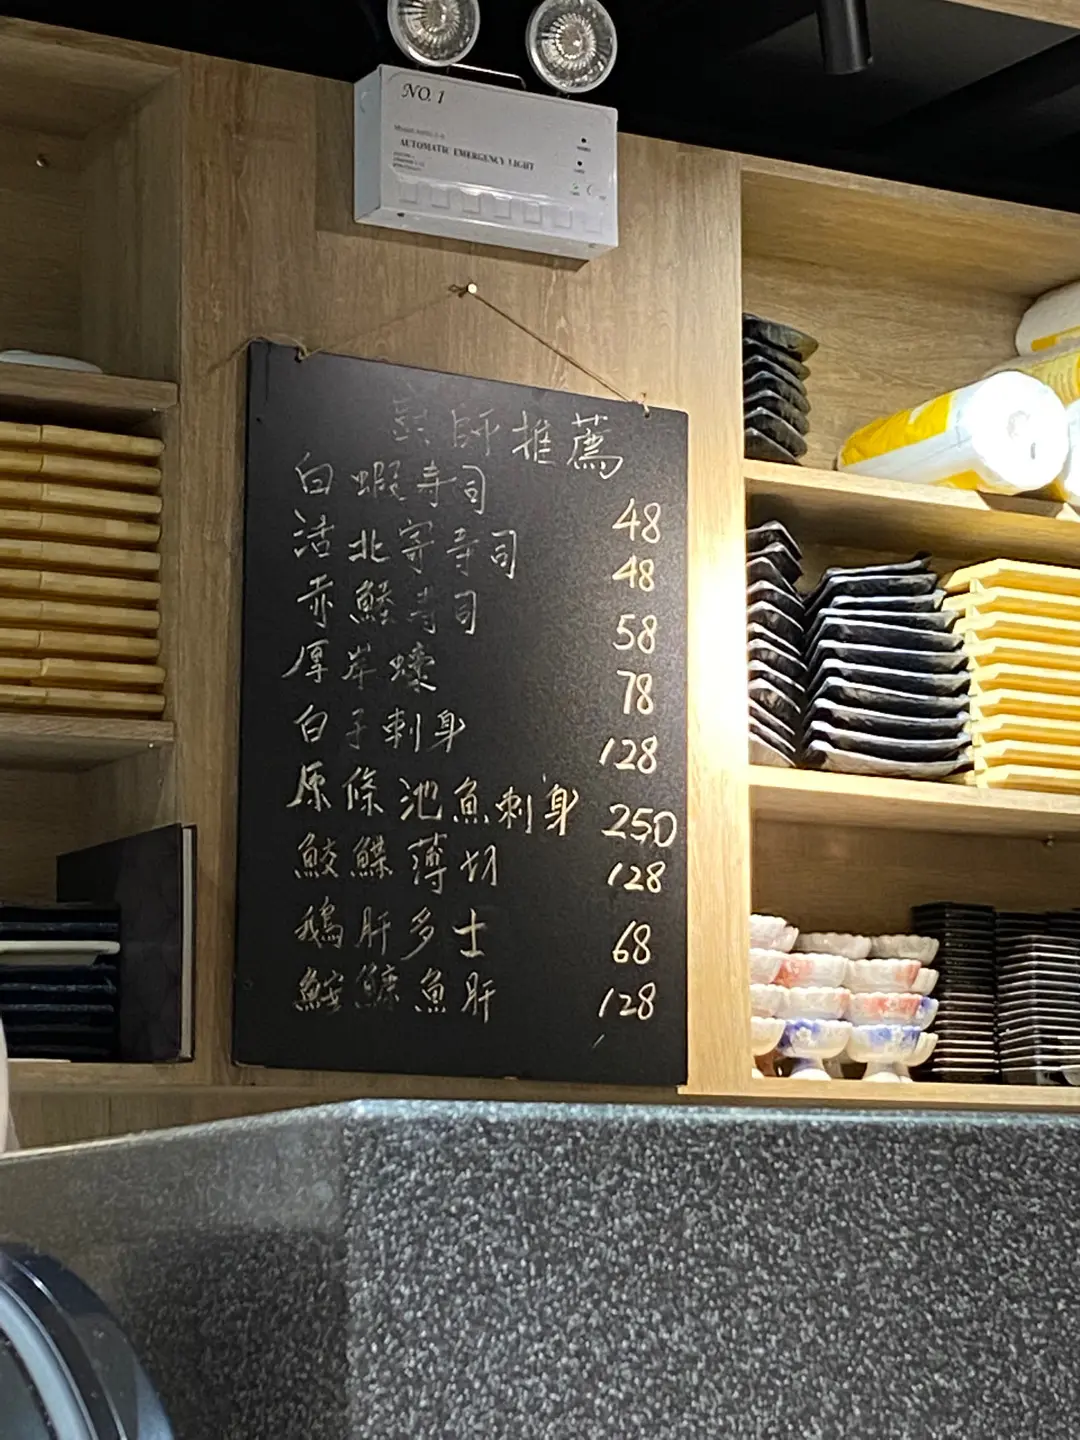 NO. 1
AUTOMATIC EMERGENCY LIGHT
廚師推薦
白蝦寺司 48
活北寄寺司 48
赤鯥寺司 58
厚岸蠔 78
白子刺身 128
原條池魚刺身 250
鮫鰈薄切 128
鵝肝多士 68
鮟鱇魚肝 128